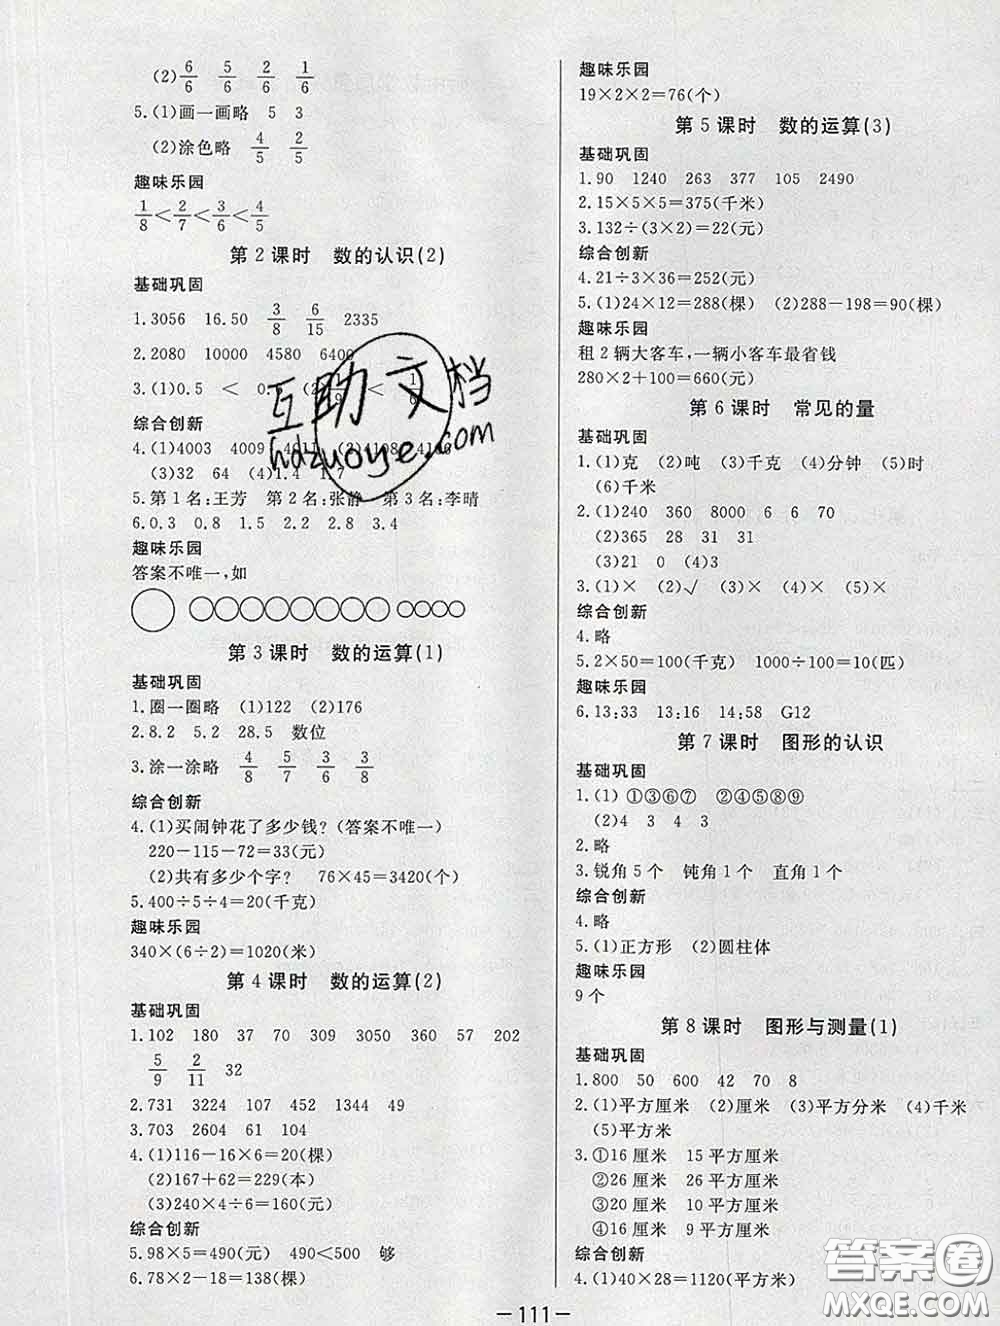 (2)6/6 5/6 2/6 1/6
5.(1)画一画略 5 3
(2)涂色略 4/5 2/5
趣味乐园
1/8<2/7<3/6<4/5
第 2 课时 数的认识(2)
基础巩固
1.3056 16.50 3/8 6/15 2335
2.2080 10000 4580 6400
3.(1)0.5 <
综合创新
4.(1)4003 4009 4011 (2)4108 4146
(3)32 64 (4)1.4 1.7
5.第 1 名:王芳 第 2 名:张静 第 3 名:李晴
6.0.3 0.8 1.5 2.2 2.8 3.4
趣味乐园
答案不唯一,如
第 3 课时 数的运算(1)
基础巩固
1.圈一圈略 (1)122 (2)176
2.8.2 5.2 28.5 数位
3.涂一涂略 4/8 5/7 3/6 3/8
综合创新
4.(1)买闹钟花了多少钱?(答案不唯一)
220-115-72=33(元)
(2)共有多少个字? 76×45=3420(个)
5.400÷5÷4=20(千克)
趣味乐园
340×(6÷2)=1020(米)
第 4 课时 数的运算(2)
基础巩固
1.102 180 37 70 309 3050 360 57 202
5/9 2/11 32
2.731 3224 107 452 1344 49
3.703 2604 61 104
4.(1)116-16×6=20(棵)
(2)167+62=229(本)
(3)240×4÷6=160(元)
综合创新
5.98×5=490(元) 490<500 够
6.78×2-18=138(棵)
趣味乐园
19×2×2=76(个)
第 5 课时 数的运算(3)
基础巩固
1.90 1240 263 377 105 2490
2.15×5×5=375(千米)
3.132÷(3×2)=22(元)
综合创新
4.21÷3×36=252(元)
5.(1)24×12=288(棵) (2)288-198=90(棵)
趣味乐园
租 2 辆大客车,一辆小客车最省钱
280×2+100=660(元)
第 6 课时 常见的量
基础巩固
1.(1)克 (2)吨 (3)千克 (4)分钟 (5)时
(6)千米
2.(1)240 360 8000 6 6 70
(2)365 28 31 31
(3)21 0 (4)3
3.(1)× (2)√ (3)× (4)× (5)×
综合创新
4.略
5.2×50=100(千克) 1000÷100=10(匹)
趣味乐园
6.13:33 13:16 14:58 G12
第 7 课时 图形的认识
基础巩固
1.(1)①③⑥⑦ ②④⑤⑧⑨
(2)4 3 4 3
2.略
3.锐角 5 个 钝角 1 个 直角 1 个
综合创新
4.略
5.(1)正方形 (2)圆柱体
趣味乐园
9 个
第 8 课时 图形与测量(1)
基础巩固
1.800 50 600 42 70 8
2.(1)平方厘米 (2)厘米 (3)平方分米 (4)千米
(5)平方米
3.①16 厘米 15 平方厘米
②26 厘米 26 平方厘米
③20 厘米 10 平方厘米
④16 厘米 9 平方厘米
综合创新
4.(1)40×28=1120(平方米)
-111-
互助文档
hdzuoye.com
答案圈
MXQE.COM